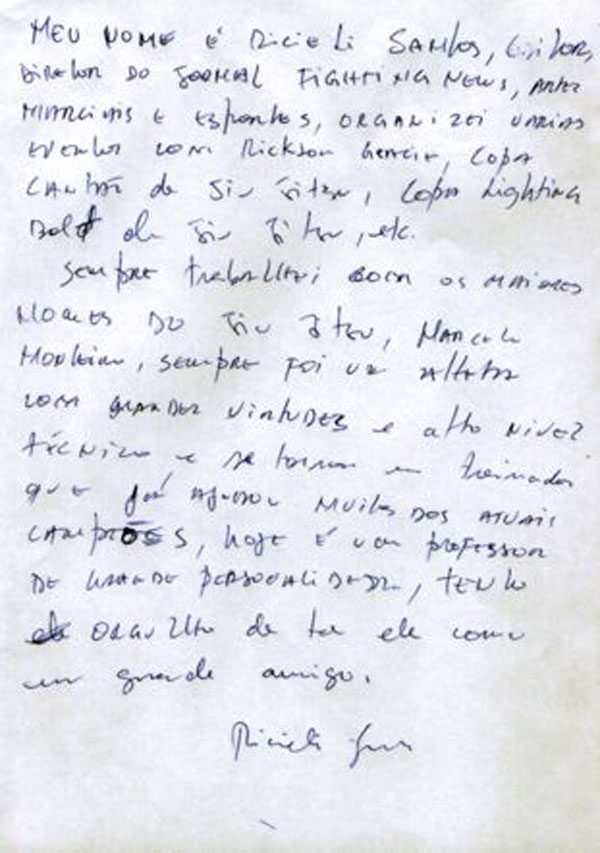 MEU NOME É Ricieli SANtos, Editor,
DiretoR DO JORNAL FIGHTING NEWS, ARTES
MARCIAIS E ESportES, ORGANIZEI VARIAS
EVENtos COM Rickson Gracie, Copa
CANTÃO de Jiu Jitsu, Copa Lighting
Bolt de Jiu Jitsu, etc.
SEmpRE trabalhei com os MAIORES
NOMES DO Jiu Jitsu, MARCELO
MONteiro, SEmpRE FOI um Atleta
com GRANDES ViRtUDES e alto NIVEL
técnico e se tornou um treinador
que já AJUDOU MUitos DOS AtUAIS
CAMpÕES, hoje É um pRoFESSOR
DE GRANDE pERSONALIDADE, tENho
ORGULho de ter ele como
um grande amigo.